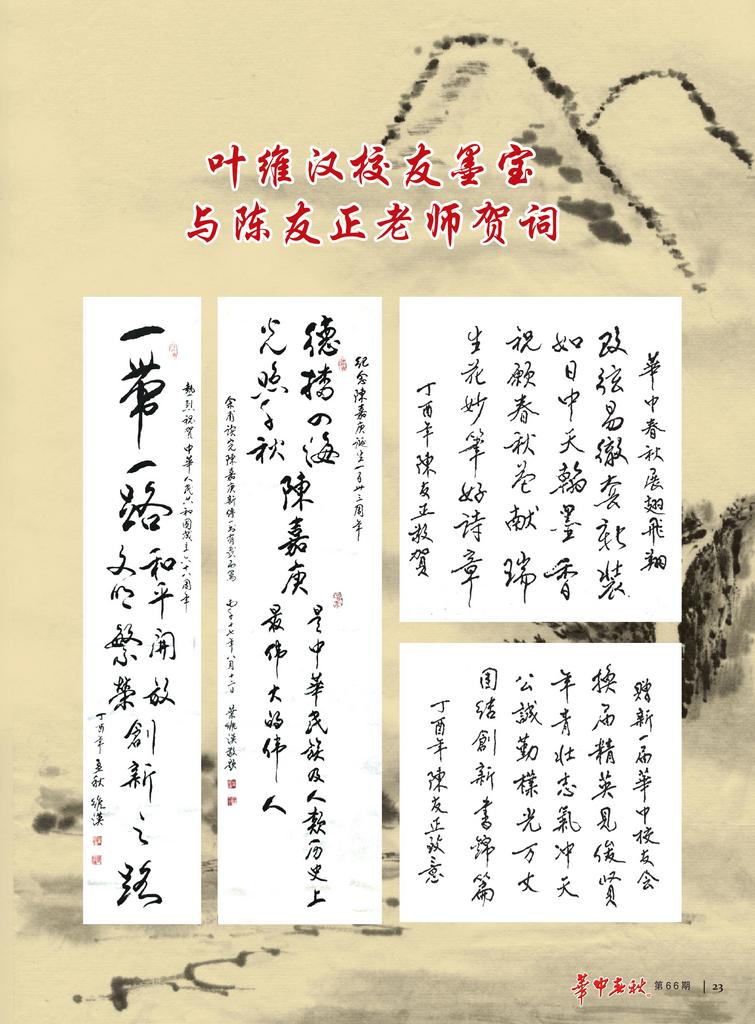 叶维汉校友墨宝
与陈友正老师贺词
華中春秋展翅飛翔
改弦易徹套新裝
如日中天翰墨香
祝願春秋花献瑞
生花妙筆好詩章
丁酉年陳友正敬賀
紀念陳嘉庚誕生一百卅三周年
德播四海
光照千秋
陳嘉庚
是中華民族及人類历史上
最伟大的伟人
余甫读完陳嘉庚新傳一书有感而寫
二〇一七年八月十二日
葉維漢敬录
熱烈祝贺中華人民共和國成立六十八周年
一帶一路
和平開放創新之路
文明繁榮
丁酉年孟秋
維漢
贈新一届華中校友会
換届精英見俊賢
年青壮志氣冲天
公誠勤樸光万丈
團结創新書錦篇
丁酉年陳友正致意
華中春秋 第66期 | 23